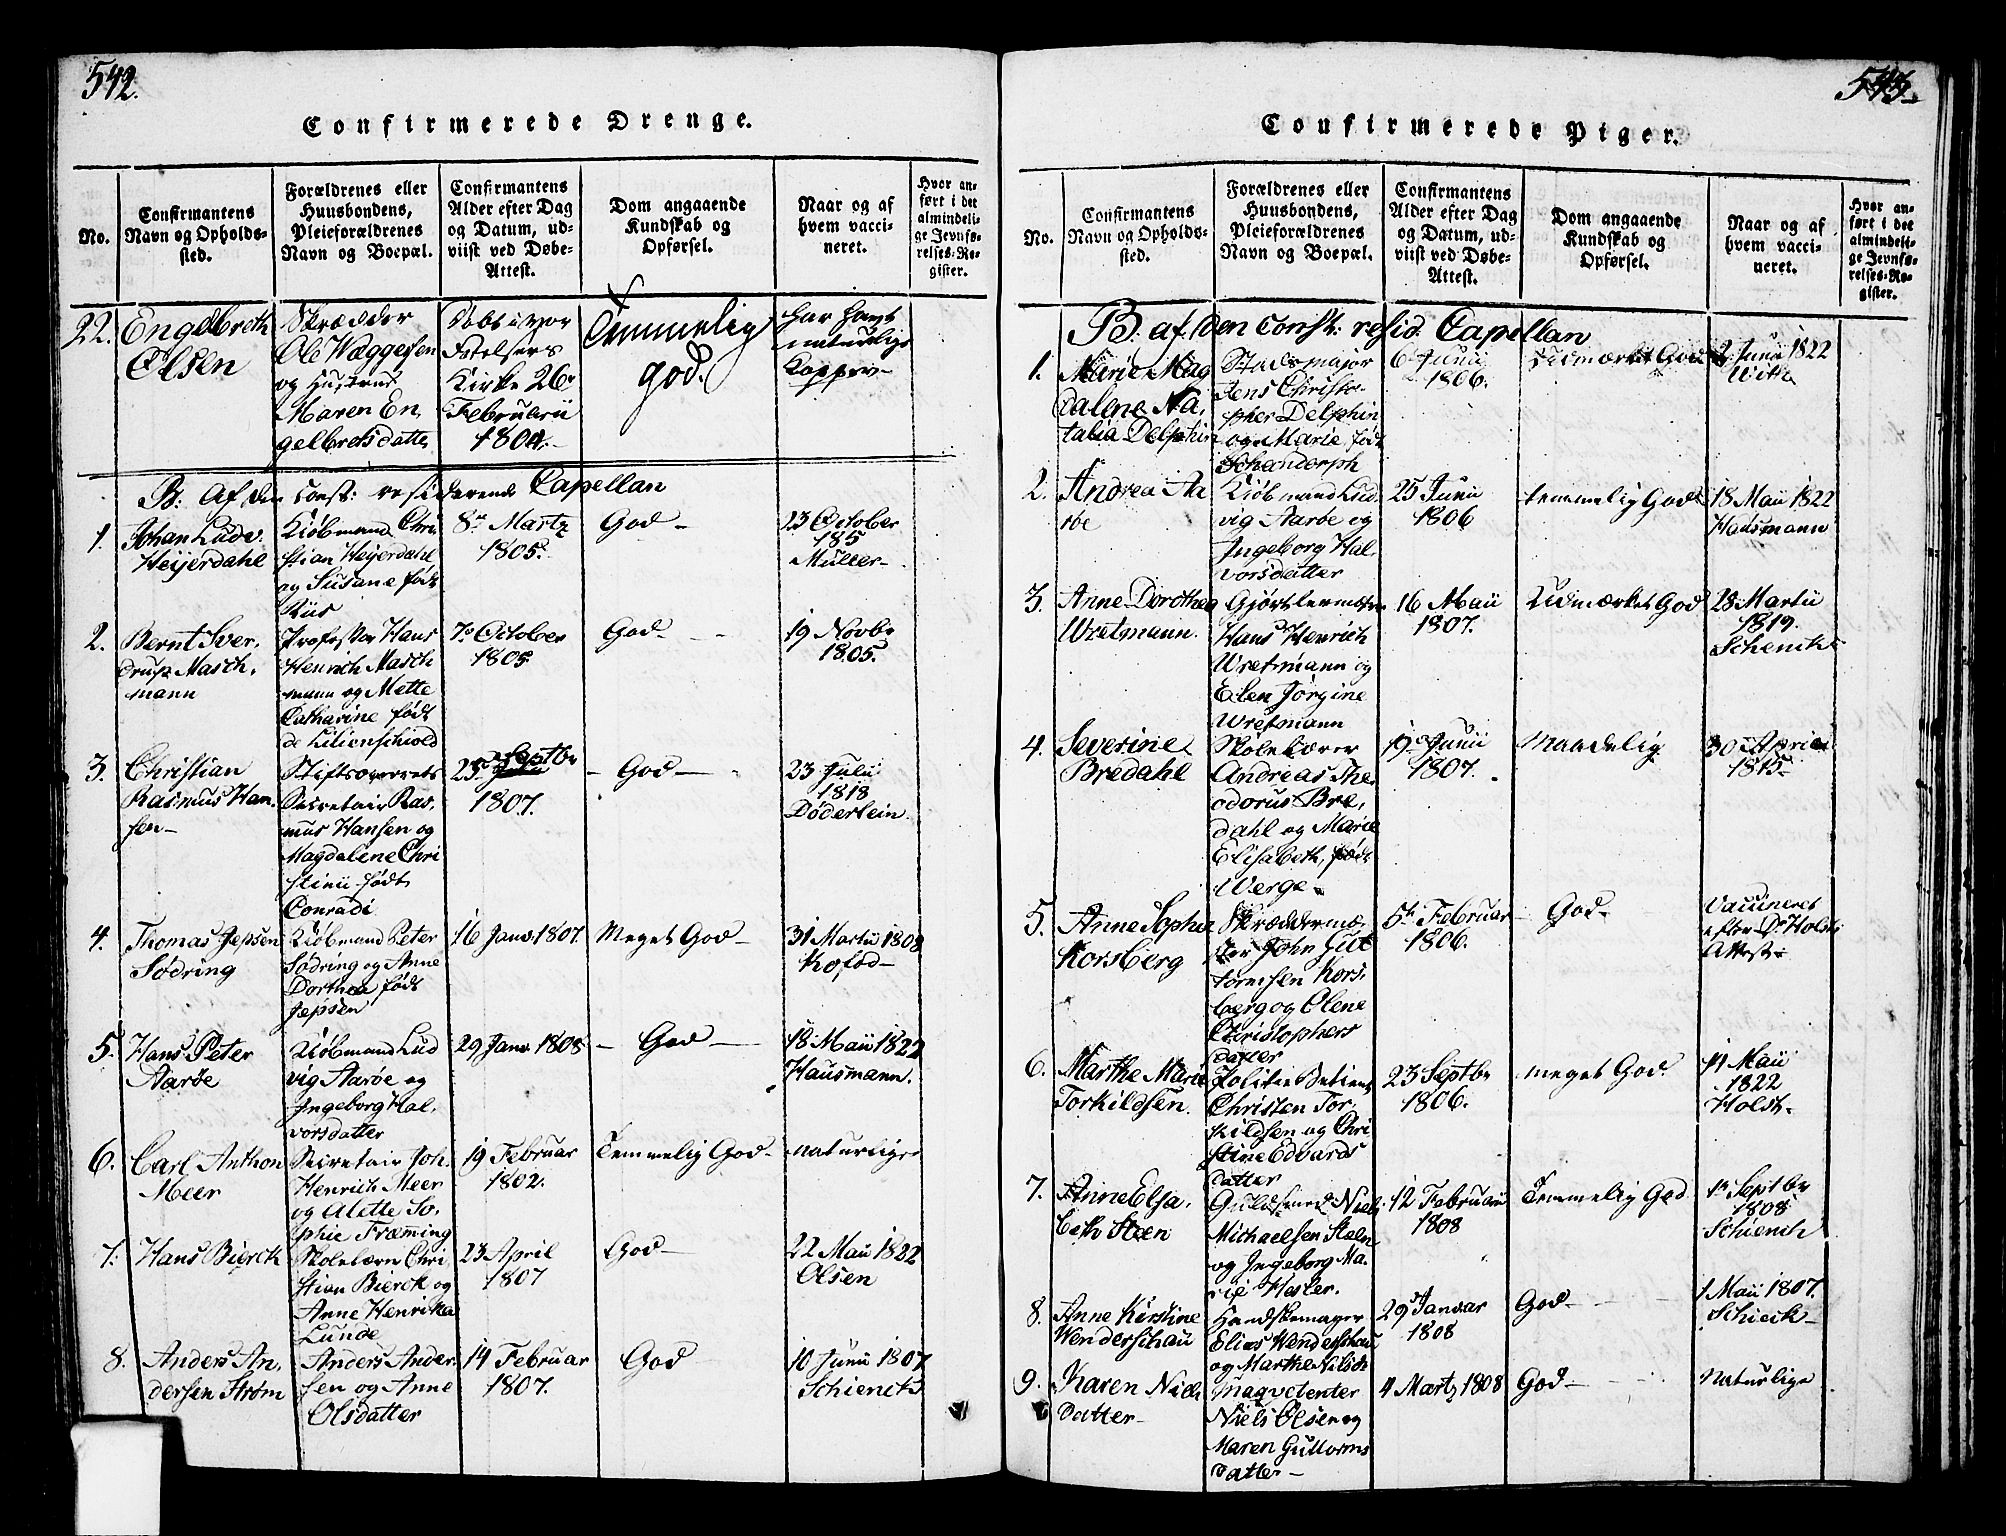 542.
Confirmerede Drenge.
No.
Confirmantens
Navn og Opholds-
sted.
Forældrenes eller
Huusbondens,
Pleieforældrenes
Navn og Boepæl.
Confirmantens
Alder efter Dag
og Datum, ud-
viist ved Døbe-
Attest.
Dom angaaende
Kundskab og
Opførsel.
Naar og af
hvem vacci-
neret.
Hvor an-
ført i det
almindeli-
ge Jevnfø-
relses-Re-
gister.
22.
Engelbreth
Olsen
Skrædder
Ole Waggersen
og Hustrue
Maren En,
gelbretsdatter
Døbt i vor
Frelsers
Kirke 26de
Februarii
1804.
Temmelig
god.
har havt
naturlige
Kopper
B: Af den const: residerende Capellan
1.
Johan Ludv.
Heijerdahl
Kiøbmand Chri
stian Heijerdahl
og Susane født
Riis
8de Martz
1805.
God
23 October
185
Müller
2.
Bernt Sver,
drup Masch,
mann
Professor Hans
Henrich Masch
mann og Mette
Catharine født
de Lilienschiold
7de October
1805.
God
19 Novbr
1805.
3.
Christian
Rasmus Han,
sen
Stiftsoverrets
Secretair Ras,
mus Hansen og
Magdalene Chri
stine født
Conradi
25de Septbr
1807.
God
23 Julii
1818
Døderlein
4.
Thomas Jepsen
Sødring
Kiøbmand Peter
Sødring og Anne
Dorthea født
Jepsen
16 Janv. 1807
Meget God
31 Martii 1808
Kofod
5.
Hans Peter
Aarøe
Kiøbmand Lud
vig Aarøe og
Ingeborg Hal,
vorsdatter
29 Janv. 1808
God
18 Maii 1822
Hausmann.
6.
Carl Anthon
Meer
Secretair Joh.
Henrich Meer
og Alette So,
phie Fræming
19 Februar
1802.
Temmelig God
naturlige
7.
Hans Bierck
Skolelærer Chri
stian Bierck og
Anne Henrikka
Lunde
23 April
1807
God
22 Maii 1822
Olsen
8.
Anders An,
dersen Strøm
Anders Ander,
sen og Anne
Olsdatter
14 Februar
1807.
God
10 Junii 1807
Schienck
543.
Confirmerede Piger.
No.
Confirmantens
Navn og Opholds-
sted.
Forældrenes eller
Huusbondens,
Pleieforældrenes
Navn og Boepæl.
Confirmantens
Alder efter Dag
og Datum, ud-
viist ved Døbe-
Attest.
Dom angaaende
Kundskab og
Opførsel.
Naar og af
hvem vacci-
neret.
Hvor an-
ført i det
almindeli-
ge Jevnfø-
relses-Re-
gister.
B: af den const: resid: Capellan
1.
Marie Mag
dalene Na,
talia Delphin
Stadsmajor
Jens Christo,
pher Delphin
og Marie født
Schandorph
6 Junii
1806.
Udmærket God
2 Junii 1822
With
2.
Andrea Aa
røe
Kiøbmand Lud,
vig Aarøe og
Ingeborg Hal,
vorsdatter
25 Junii
1806
temmelig God
18 Maii 1822
Hausmann
3.
Anne Dorothea
Wretmann.
Gjørtlermester
Hans Henrich
Wretmann og
Elen Jørgine
Wretmann
16 Maii
1807.
Udmærket God
28 Martii
1819.
Schenck
4.
Severine
Bredahl
Skolelærer
Andreas The,
odorus Bre,
dahl og Marie
Elisabeth, født
Werge
19 Junii
1807.
Maadelig
30 April
1815
5.
Anne Sophie
Korsberg
Skræddermes,
ter John Gut
tormsen Kors,
berg og Olene
Christophers
datter
5te Februar
1806.
God
Vaccineret
efter Dr Holsts
Attest
6.
Marthe Marie
Torkildsen.
Politie Betient
Christen Tor,
kildsen og Chri
stine Edvards
datter
23 Septbr
1806.
meget God
11 Maii
1822
Holst
7.
Anne Elsa,
beth Steen
Guldsmed Niels
Michaelsen Steen
og Ingeborg Ma,
rie Hesler.
12 Februarii
1808
Temmelig God
1te Septbr
1808
Schienck
8.
Anne Kirstine
Wenderschau
Handskemager
Elias Wenderschau
og Marthe Nilsdr
29 Januar
1808
God
1 Maii 1807.
Schieck
9.
Karen Niels
datter
Marqvetenter
Niels Olsen og
Maren Gulbrands
datter
4 Martz 1808
God
Naturlige